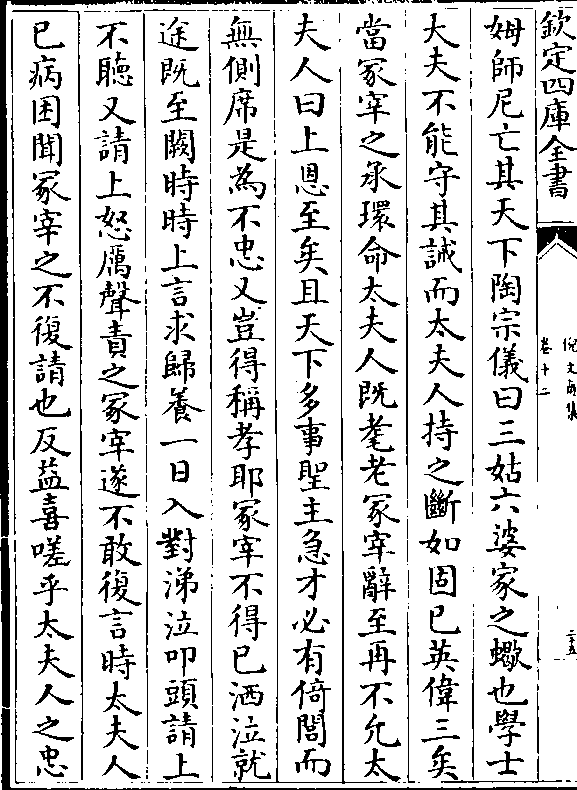 欽定四庫全書
倪文貞集
卷十二
二十五
姆師尼亡其天下陶宗儀曰三姑六婆家之蠍也學士
大夫不能守其誡而太夫人持之斷如固已英偉三矣
當冡宰之承環命太夫人既耄老冡宰辭至再不允太
夫人曰上恩至矣且天下多事聖主急才必有倚閭而
無側席是為不忠又豈得稱孝耶冡宰不得已洒泣就
途既至闕時時上言求歸養一日入對涕泣叩頭請上
不聽又請上怒厲聲責之冡宰遂不敢復言時太夫人
已病困聞冡宰之不復請也反益喜嗟乎太夫人之忠